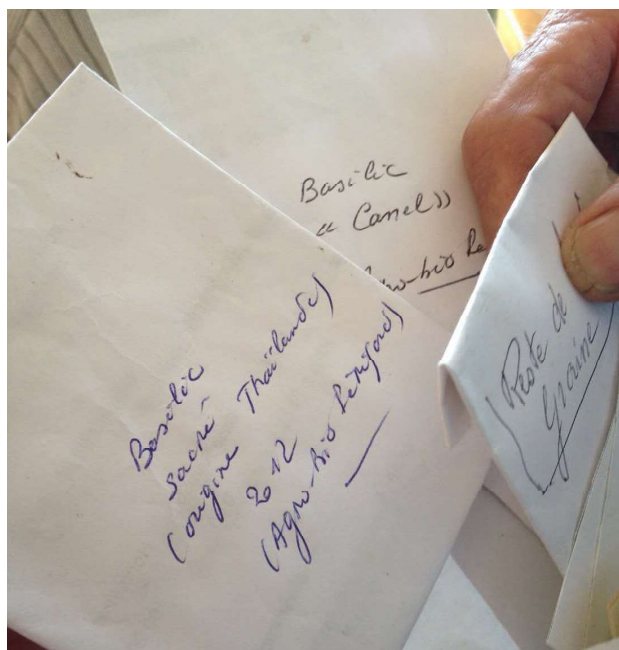 Basilic
« Canel »
Agro-bio Pé
Basilic
sacré
(origine Thaïlande)
2012
(Agro-bio Périgord)
(Reste de
graine